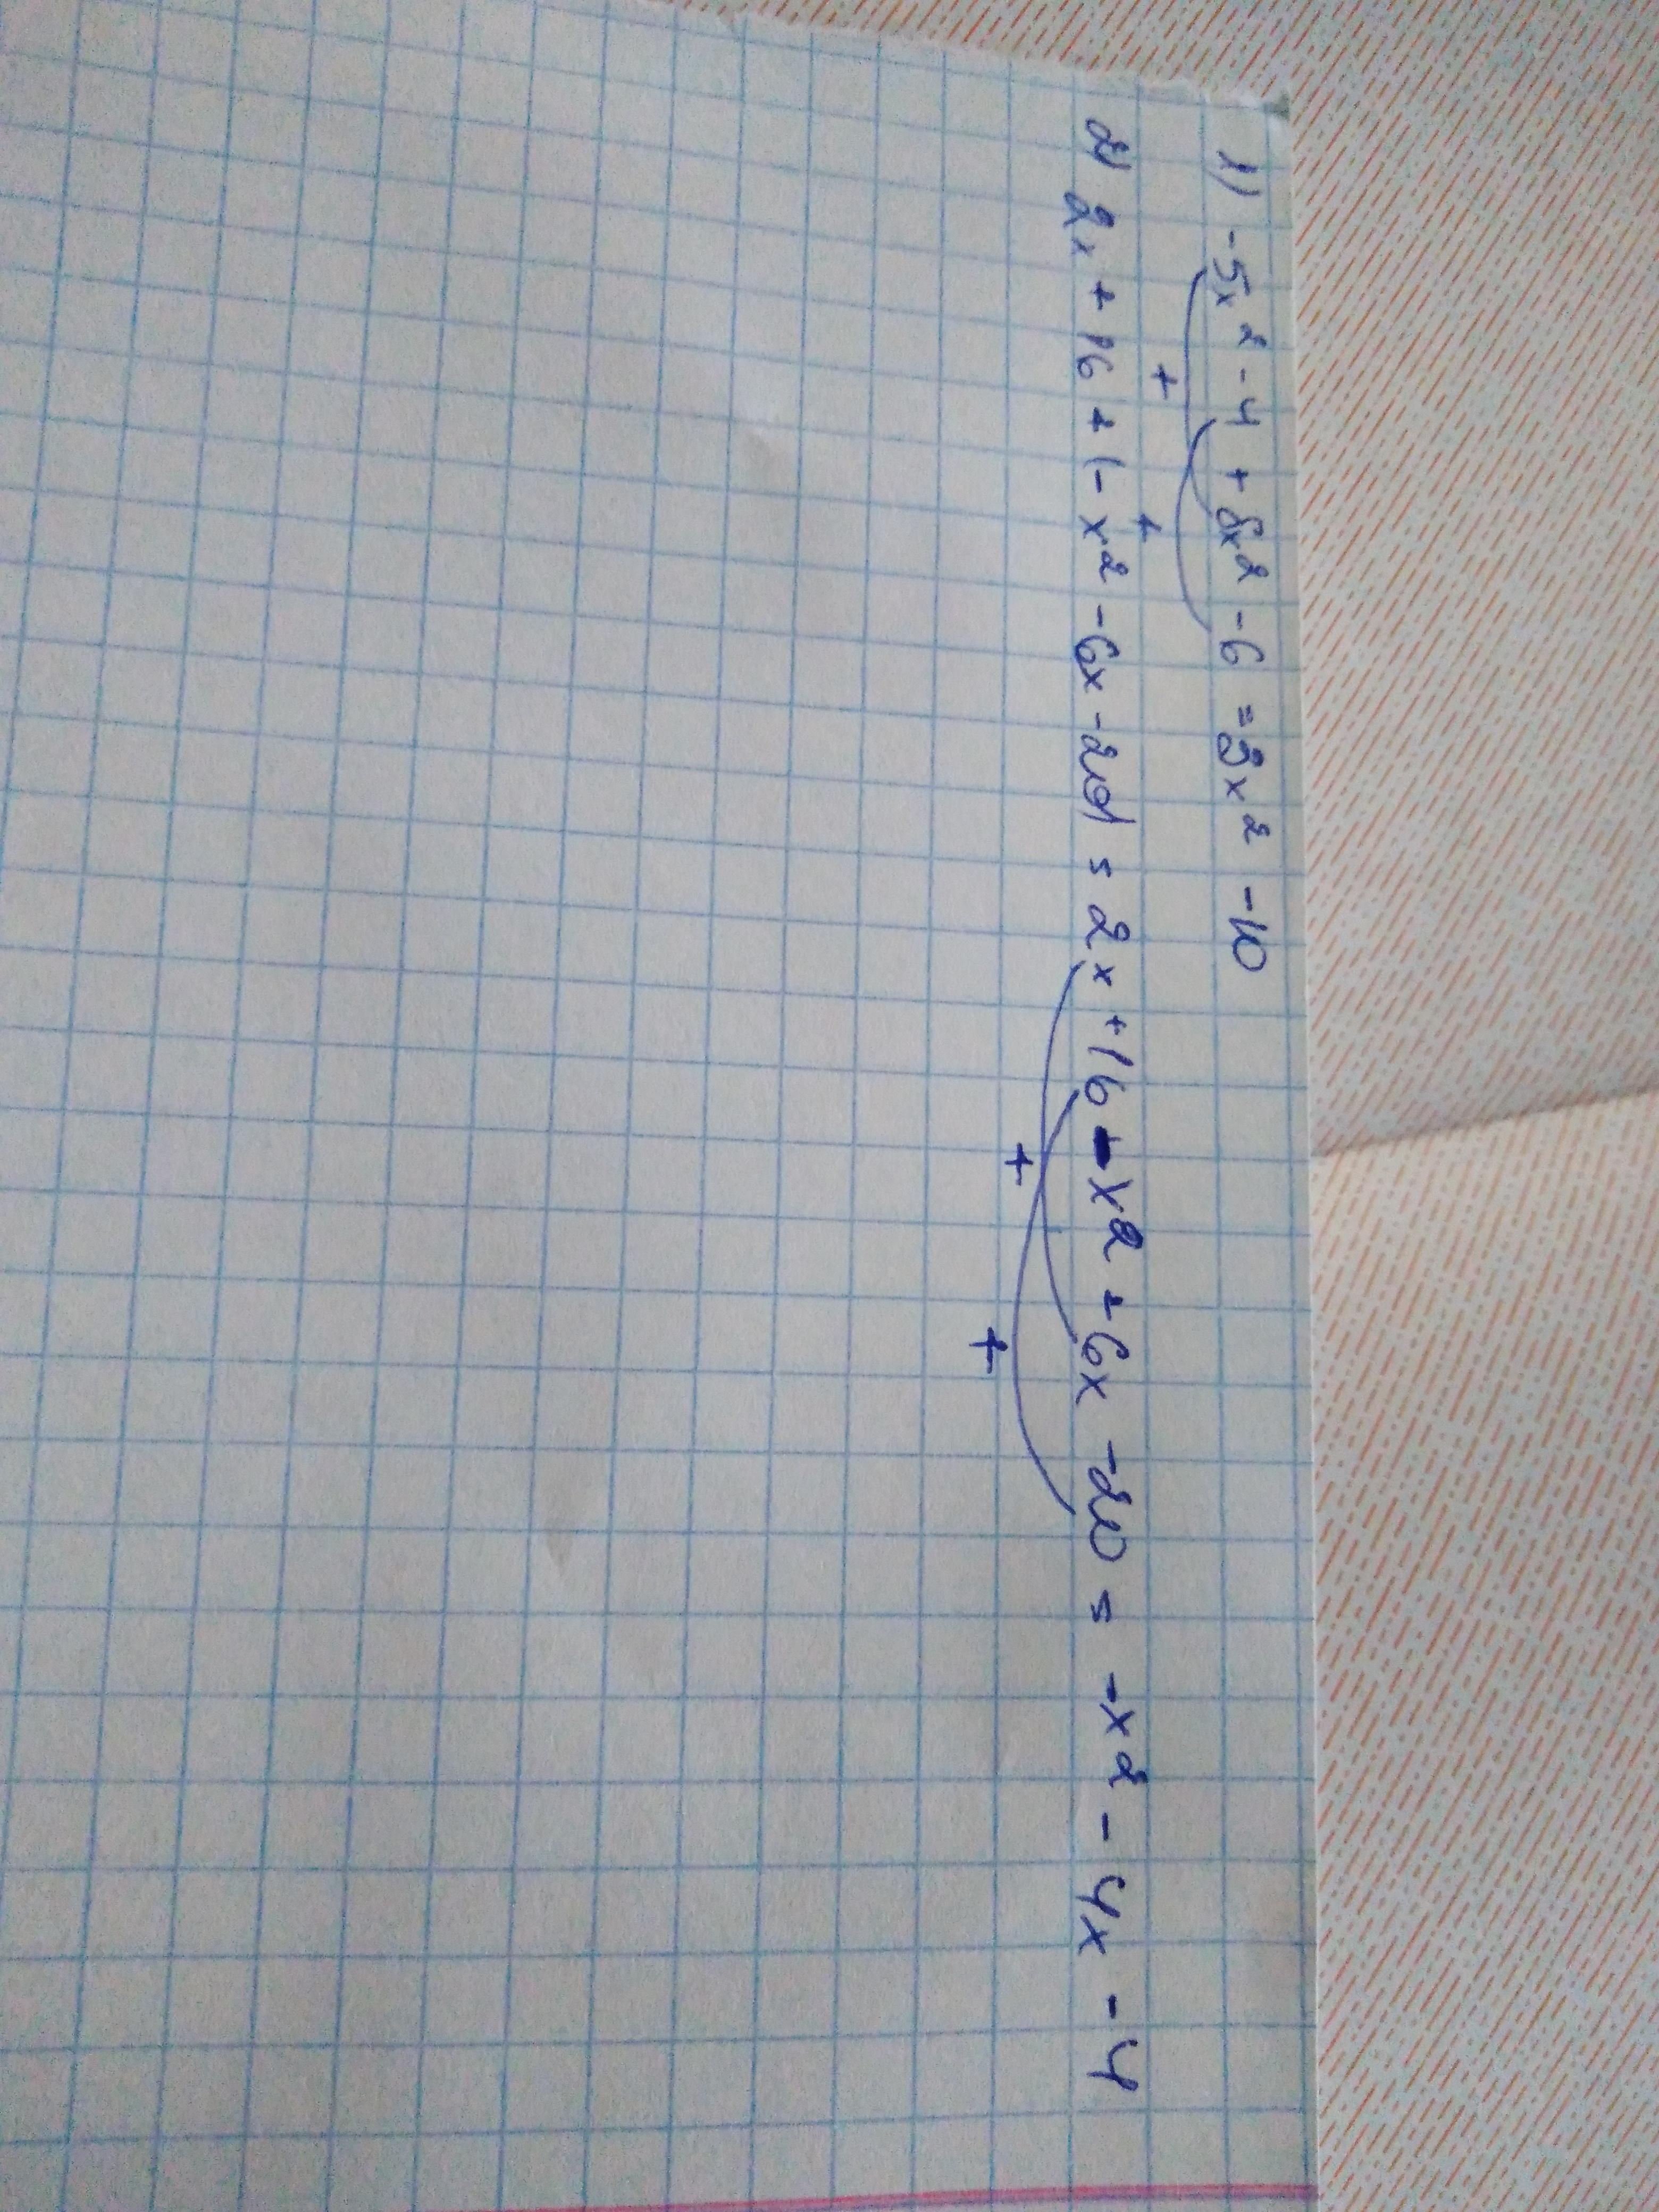 1) -5x² - 4 + 8x² - 6 = 3x² - 10
+ +
2) 2x + 16 + (- x² - 6x - 20) = 2x + 16 - x² + 6x - 20 = - x² - 4x - 4
+ +